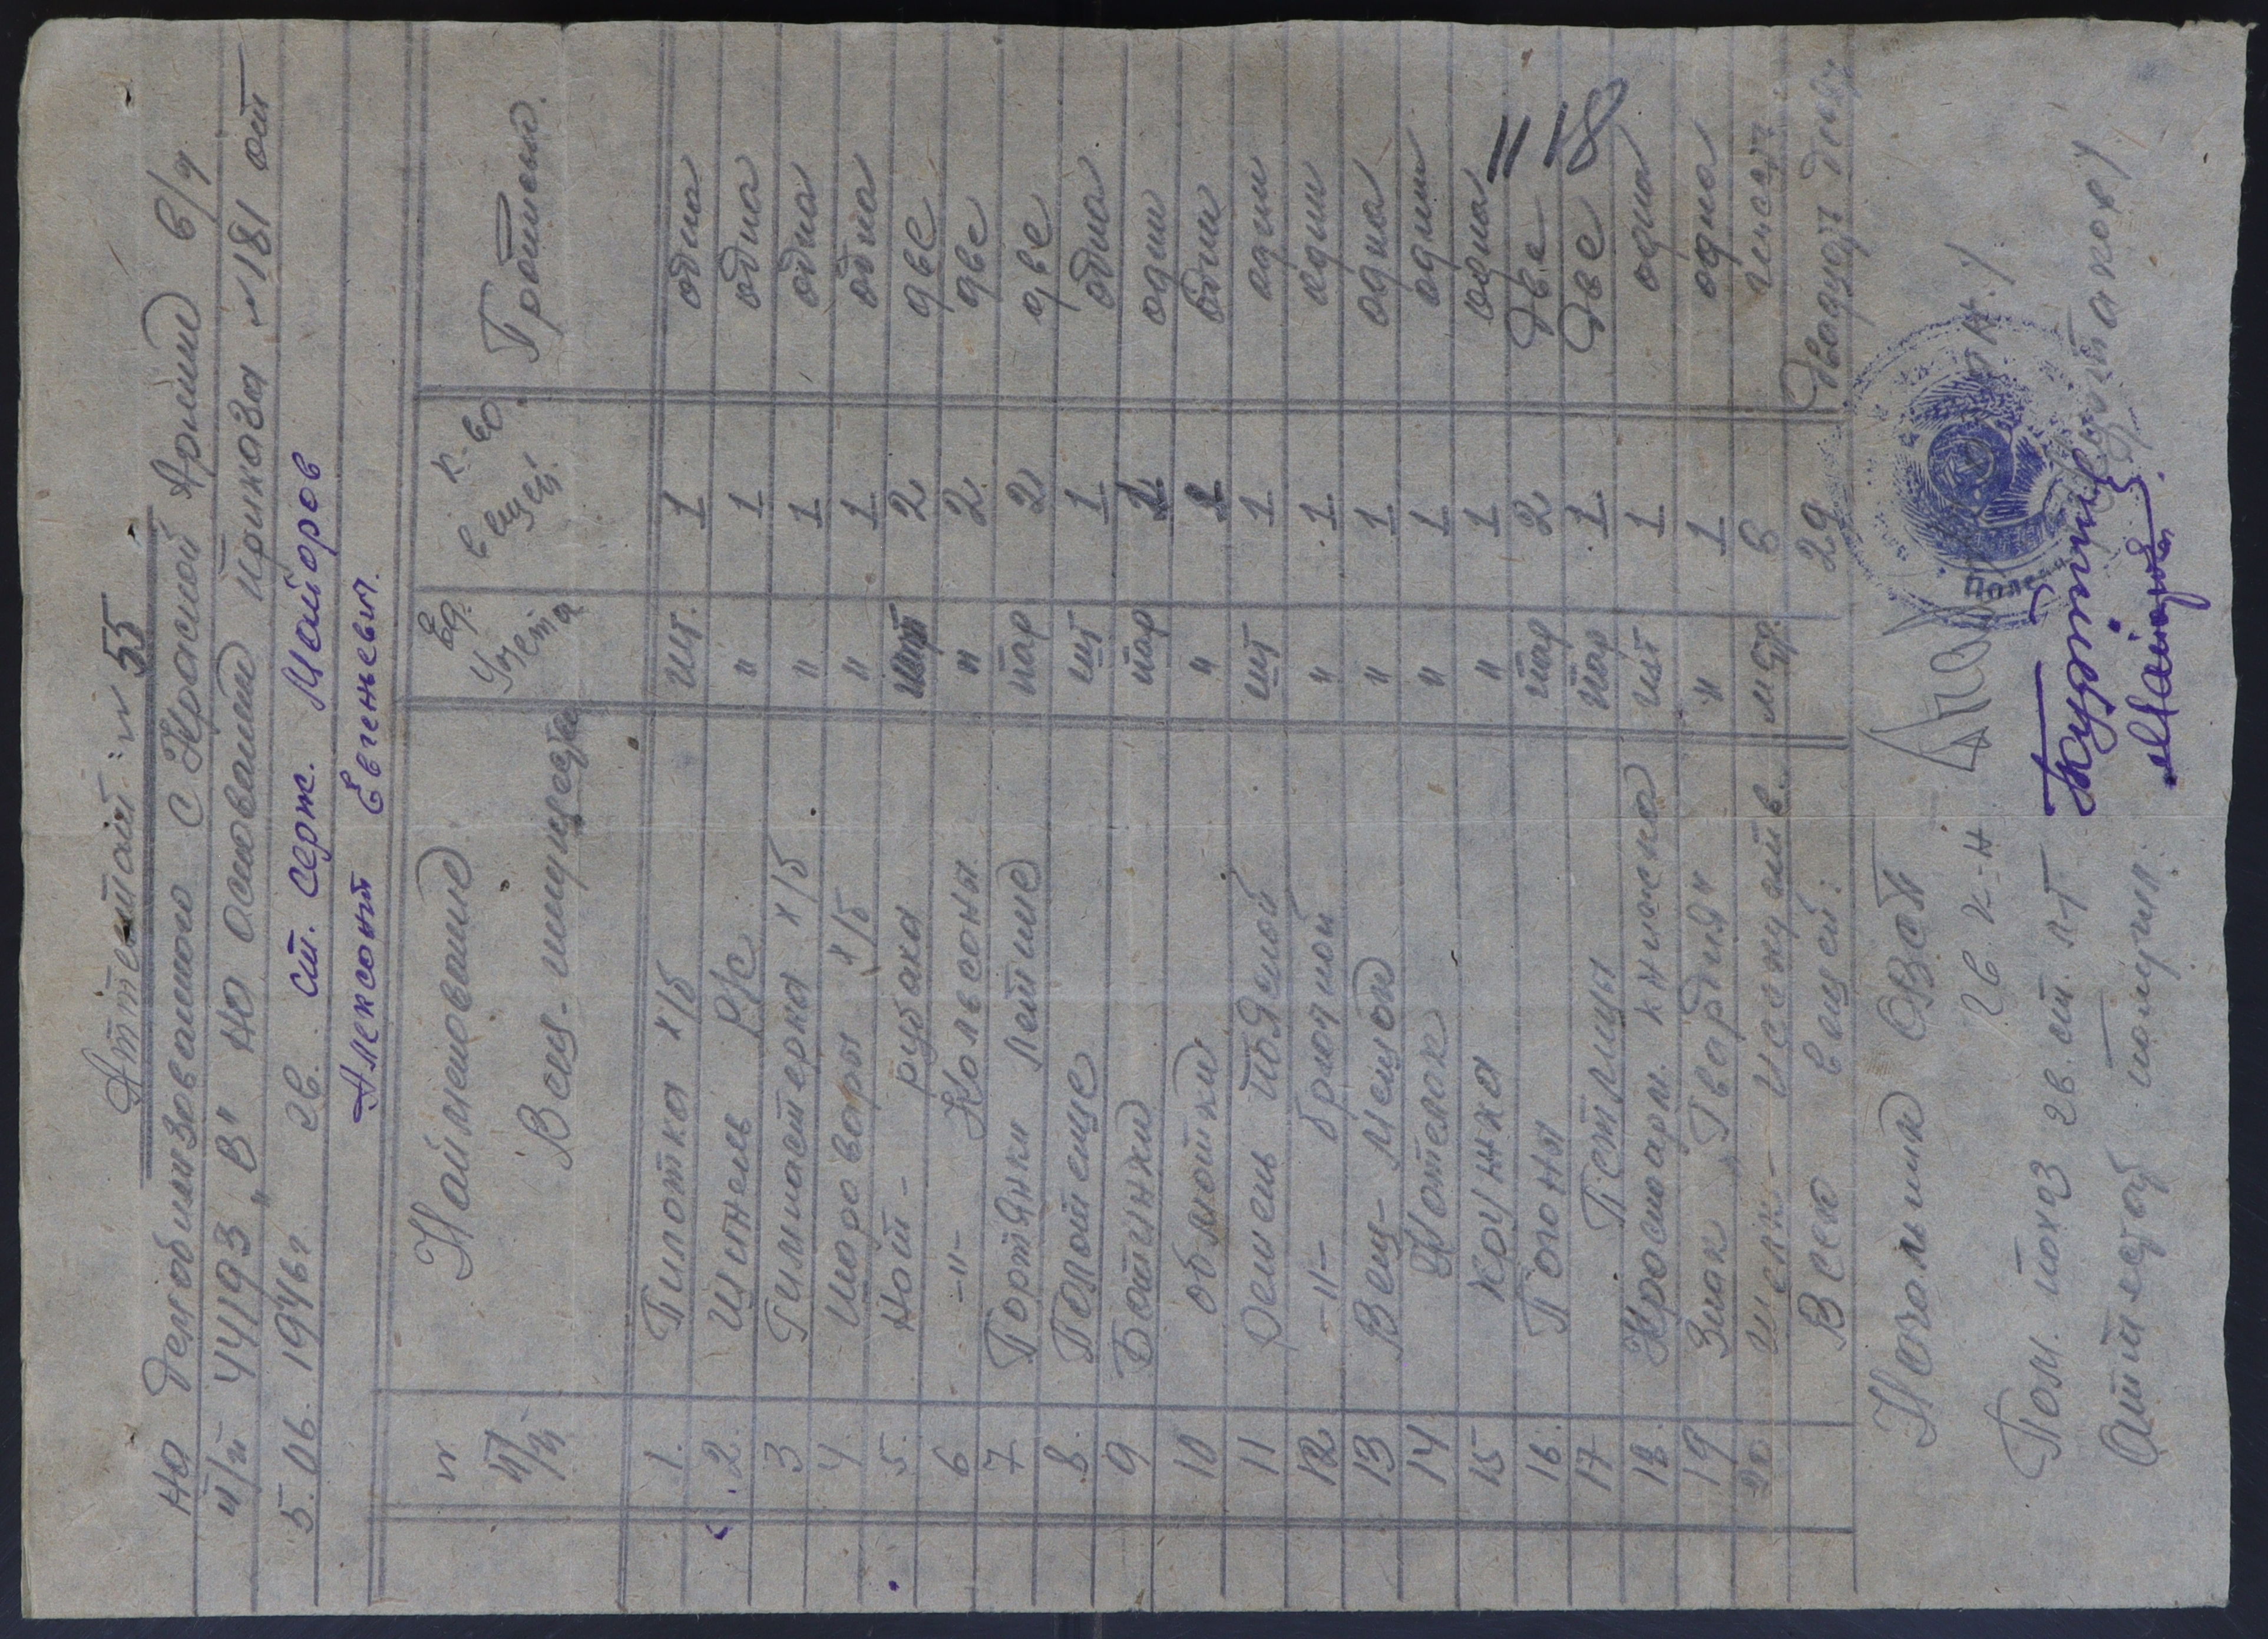 Аттестат № 55
На демобилизованного с Красной Армии в/ч
п/п 44193 „В" на основании приказа №181 от
5.06.1946г гв. ст. серж. Майоров
Алексант Евгеневич.
№ п/п Наименование Вещ-имущества Ед. Учета К-во вещей. Прописью.
1. Пилотка х/б шт. 1 одна
2. Шинель р/с " 1 одна
3 Гимнастерка х/б " 1 одна
4 Шаровары х/б " 1 одна
5. Нат- рубаха шт 2 две
6 -"- Кальсоны " 2 две
7 Портянки летние пар 2 две
8 Полотенце шт 1 одна
9 Ботинки пар 1 один
10 обмотки " 1 один
11 Ремень поясной шт 1 один
12 -"- брючной " 1 один
13 Вещ-Мешок " 1 одна
14 Котелок " 1 один
15 Кружка " 1 одна
16. Погоны пар 2 Две
17 Петлицы пар 1 Две
18. Красноарм. книжка шт 1 одна
19 Знак „Гвардия" " 1 одна
20 мтр. 6 шесть
Всего вещей: 29 Двадцать девять
11 18
Начальник ОВС
гв. к-н
Полева
Пом. нохаз гв. ст. л-т
Аттестат получил. Майоров